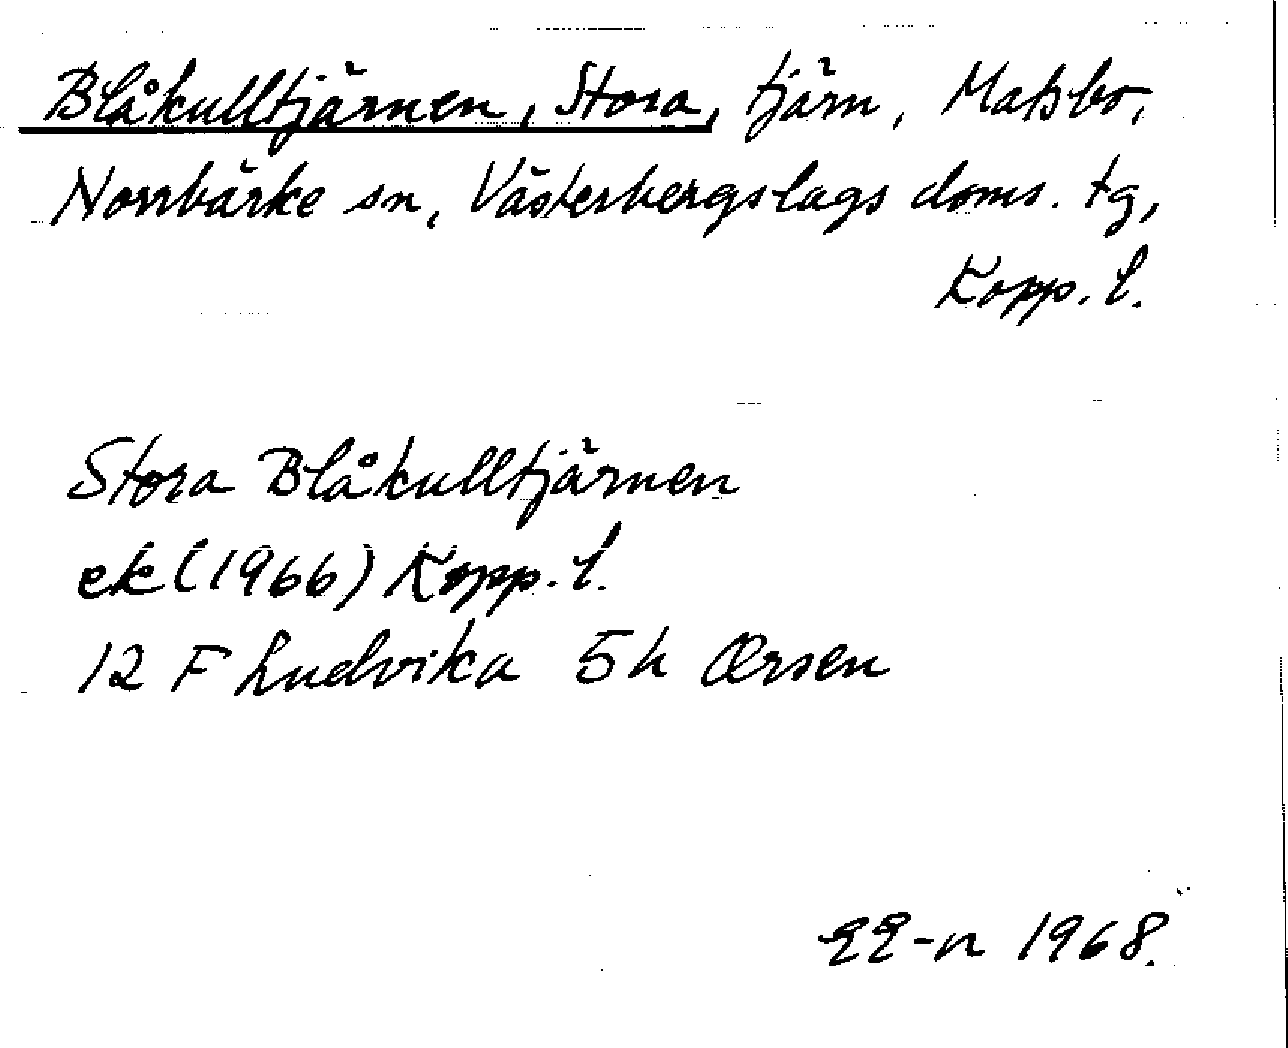 Blåkulltjärnen, Stora, tjärn, Matsbo,
Norrbärke sn, Västerbergslags doms. tg,
Kopp. l.
Stora Blåkulltjärnen
ek (1966) Kopp. l.
12 F Ludvika 5h Œrsen
1968.